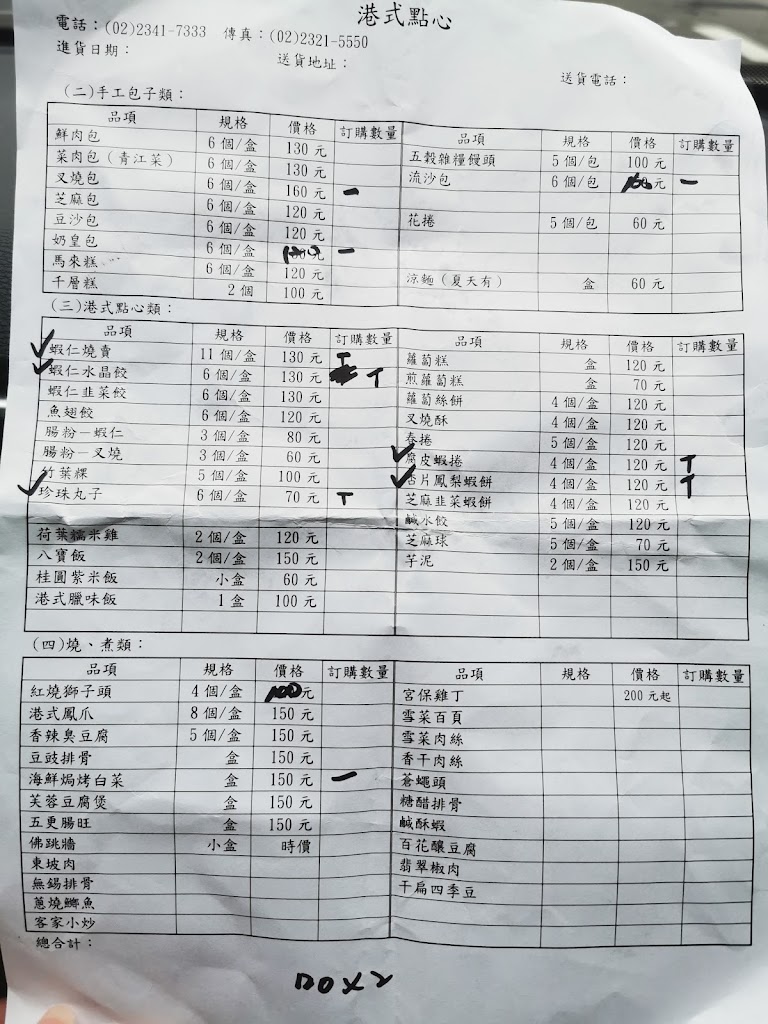 港式點心
電話：(02)2341-7333 傳真：(02)2321-5550
進貨日期： 送貨地址： 送貨電話：
(二)手工包子類：
品項 規格 價格 訂購數量
鮮肉包 6 個/盒 130 元
菜肉包（青江菜） 6 個/盒 130 元
叉燒包 6 個/盒 160 元 一
芝麻包 6 個/盒 120 元
豆沙包 6 個/盒 120 元
奶皇包 6 個/盒 元 一
馬來糕 6 個/盒 120 元
千層糕 2 個 100 元
品項 規格 價格 訂購數量
五穀雜糧饅頭 5 個/包 100 元
流沙包 6 個/包 元 一
花捲 5 個/包 60 元
涼麵（夏天有） 盒 60 元
(三)港式點心類：
品項 規格 價格 訂購數量
蝦仁燒賣 11 個/盒 130 元 T
蝦仁水晶餃 6 個/盒 130 元 T
蝦仁韭菜餃 6 個/盒 130 元
魚翅餃 6 個/盒 120 元
腸粉－蝦仁 3 個/盒 80 元
腸粉－叉燒 3 個/盒 60 元
竹葉粿 5 個/盒 100 元
珍珠丸子 6 個/盒 70 元 T
荷葉糯米雞 2 個/盒 120 元
八寶飯 2 個/盒 150 元
桂圓紫米飯 小盒 60 元
港式臘味飯 1 盒 100 元
品項 規格 價格 訂購數量
蘿蔔糕 盒 120 元
煎蘿蔔糕 盒 70 元
蘿蔔絲餅 4 個/盒 120 元
叉燒酥 4 個/盒 120 元
春捲 5 個/盒 120 元
腐皮蝦捲 4 個/盒 120 元 T
杏片鳳梨蝦餅 4 個/盒 120 元 T
芝麻韭菜蝦餅 4 個/盒 120 元
鹹水餃 5 個/盒 120 元
芝麻球 5 個/盒 70 元
芋泥 2 個/盒 150 元
(四)燒、煮類：
品項 規格 價格 訂購數量
紅燒獅子頭 4 個/盒 100元
港式鳳爪 8 個/盒 150 元
香辣臭豆腐 5 個/盒 150 元
豆豉排骨 盒 150 元
海鮮焗烤白菜 盒 150 元 一
芙蓉豆腐煲 盒 150 元
五更腸旺 盒 150 元
佛跳牆 小盒 時價
東坡肉
無錫排骨
蔥燒鯽魚
客家小炒
品項 規格 價格 訂購數量
宮保雞丁 200 元起
雪菜百頁
雪菜肉絲
香干肉絲
蒼蠅頭
糖醋排骨
鹹酥蝦
百花釀豆腐
翡翠椒肉
干扁四季豆
總合計：